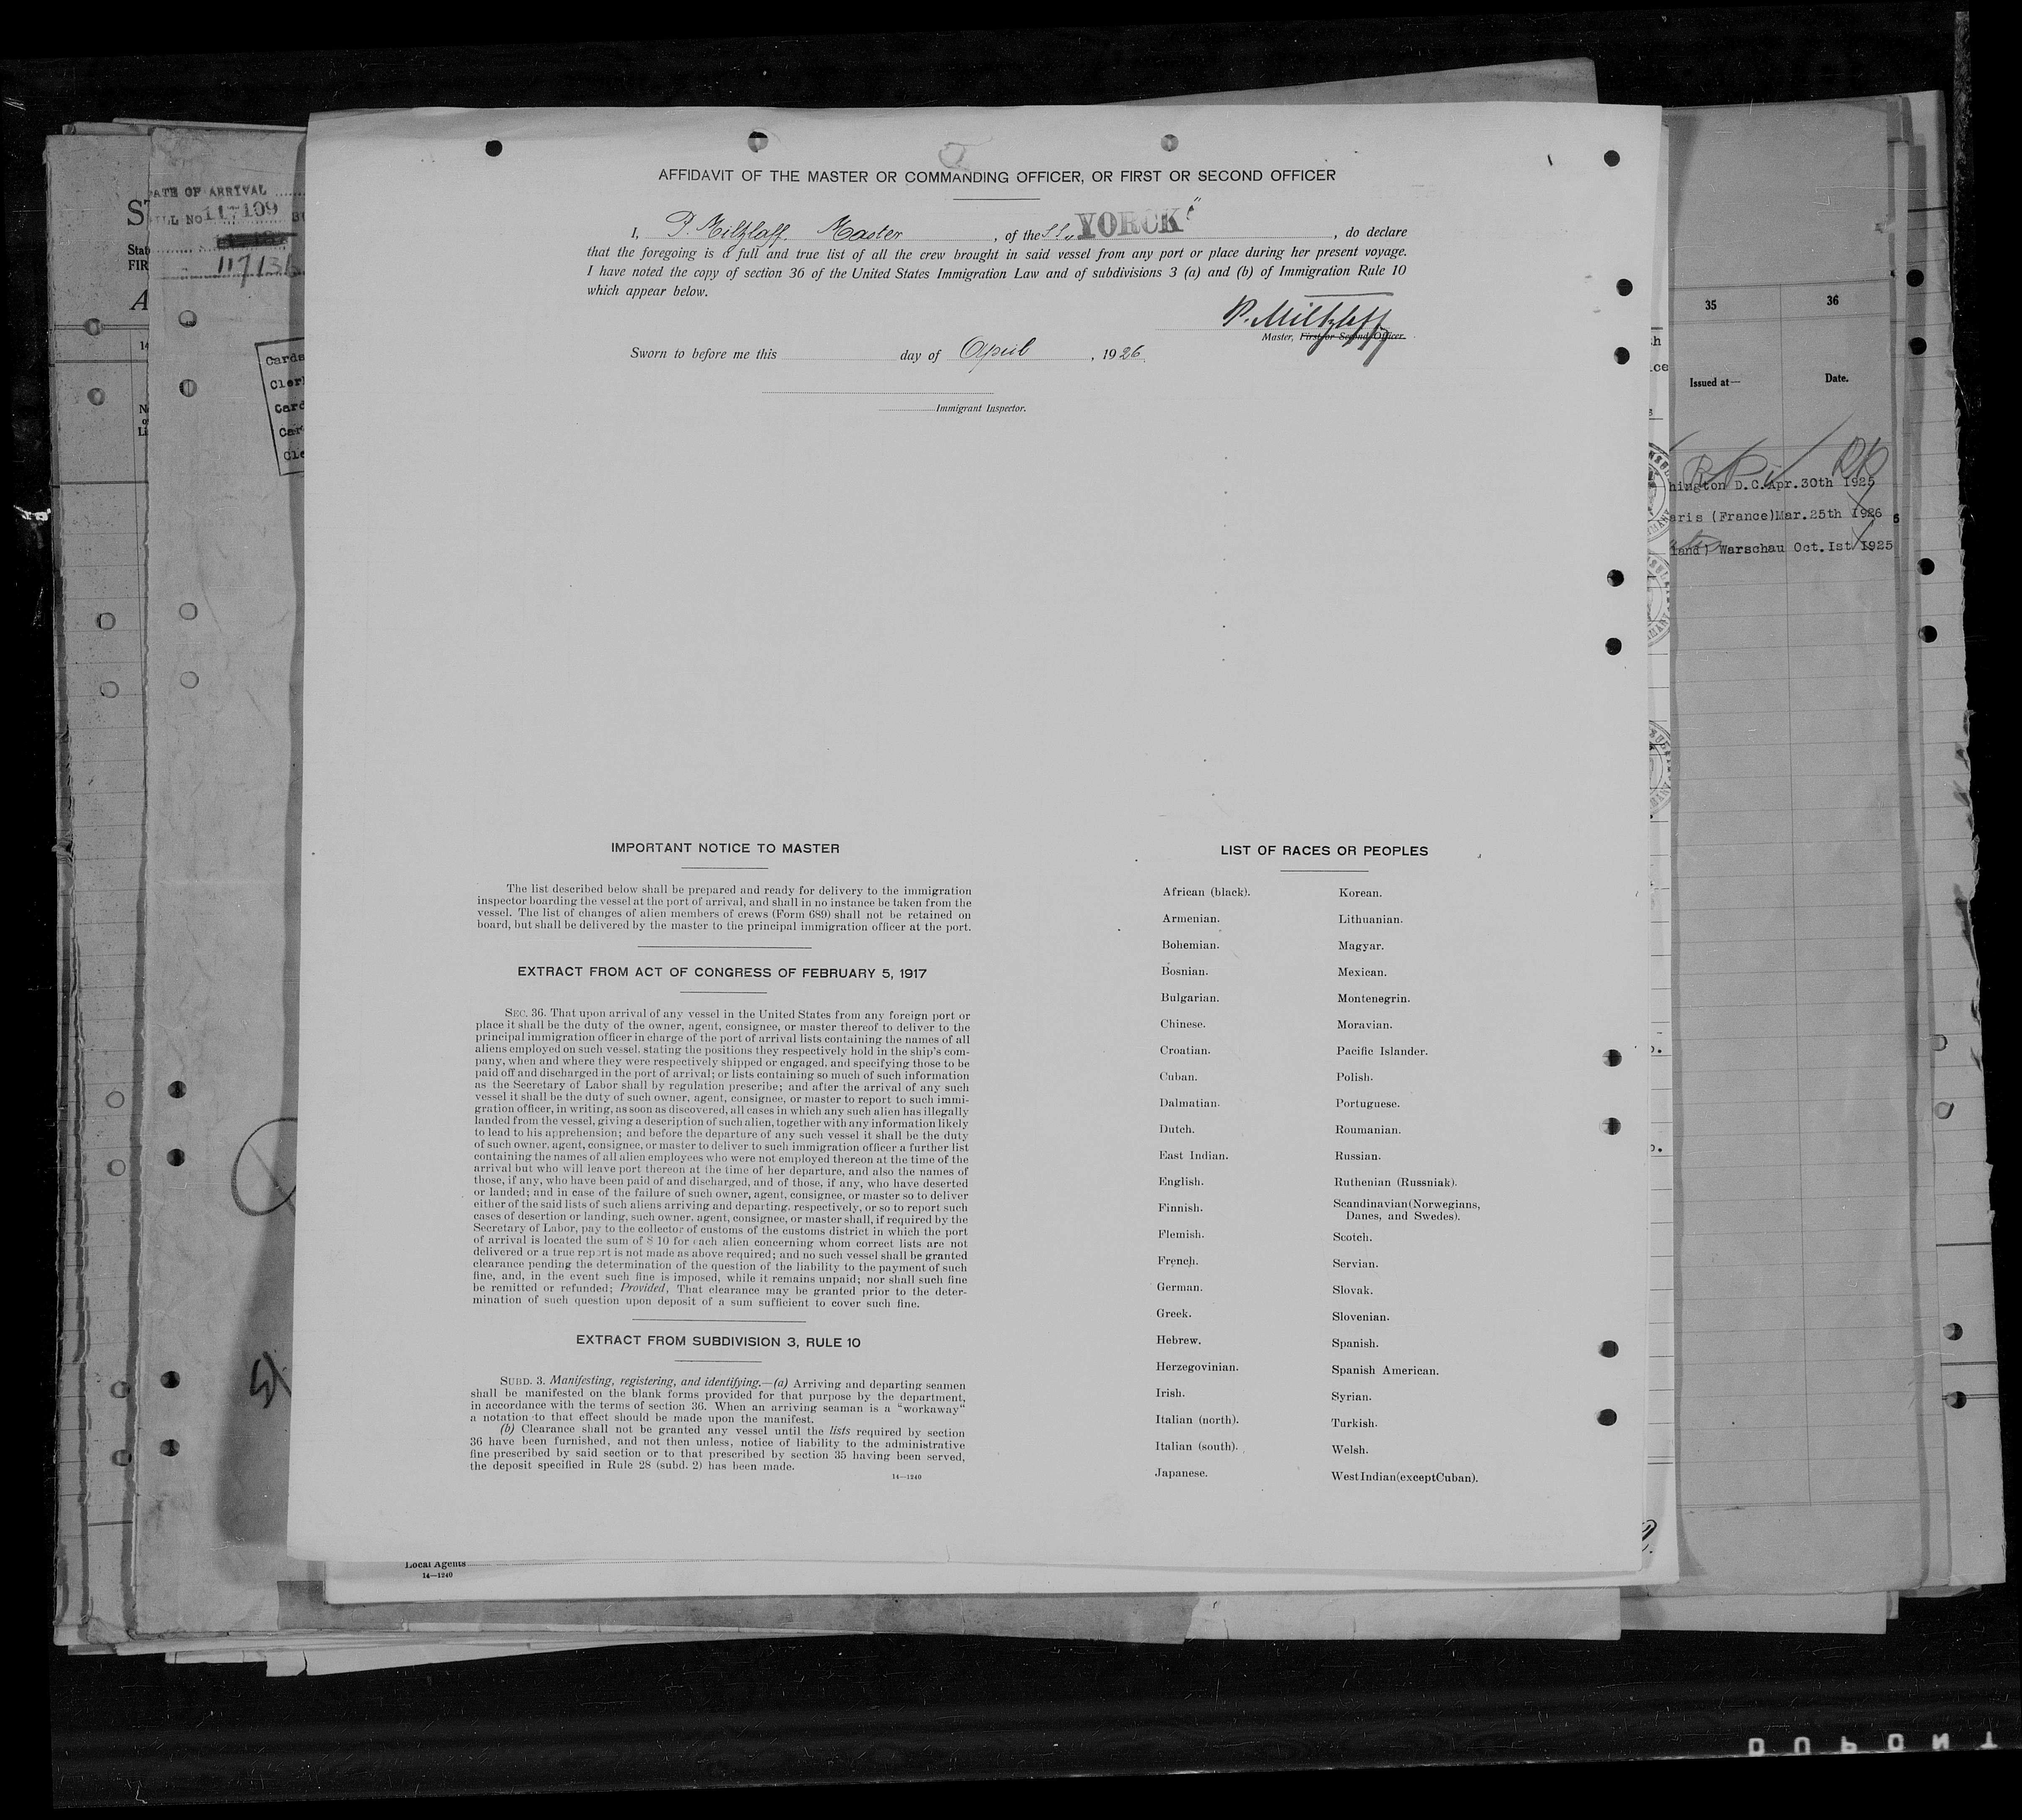 AFFIDAVIT OF THE MASTER OR COMMANDING OFFICER, OR FIRST OR SECOND OFFICER
I, P. Miltzlaff. Master, of the S.S. „YORCK“, do declare
that the foregoing is a full and true list of all the crew brought in said vessel from any port or place during her present voyage.
I have noted the copy of section 36 of the United States Immigration Law and of subdivisions 3 (a) and (b) of Immigration Rule 10
which appear below.
P. Miltzlaff
Master, First or Second Officer.
Sworn to before me this day of April, 1926.
Immigrant Inspector.
IMPORTANT NOTICE TO MASTER
The list described below shall be prepared and ready for delivery to the immigration
inspector boarding the vessel at the port of arrival, and shall in no instance be taken from the
vessel. The list of changes of alien members of crews (Form 689) shall not be retained on
board, but shall be delivered by the master to the principal immigration officer at the port.
EXTRACT FROM ACT OF CONGRESS OF FEBRUARY 5, 1917
SEC. 36. That upon arrival of any vessel in the United States from any foreign port or
place it shall be the duty of the owner, agent, consignee, or master thereof to deliver to the
principal immigration officer in charge of the port of arrival lists containing the names of all
aliens employed on such vessel. stating the positions they respectively hold in the ship's com-
pany, when and where they were respectively shipped or engaged. and specifying those to be
paid off and discharged in the port of arrival; or lists containing so much of such information
as the Secretary of Labor shall by regulation prescribe; and after the arrival of any such
vessel it shall be the duty of such owner, agent, consignee, or master to report to such immi-
gration officer, in writing, as soon as discovered, all cases in which any such alien has illegally
landed from the vessel, giving a description of such alien, together with any information likely
to lead to his apprehension; and before the departure of any such vessel it shall be the duty
of such owner. agent, consignee, or master to deliver to such immigration officer a further list
containing the names of all alien employees who were not employed thereon at the time of the
arrival but who will leave port thereon at the time of her departure, and also the names of
those, if any, who have been paid of and discharged, and of those, if any, who have deserted
or landed; and in case of the failure of such owner, agent, consignee, or master so to deliver
either of the said lists of such aliens arriving and departing. respectively, or so to report such
cases of desertion or landing, such owner. agent, consignee, or master shall, if required by the
Secretary of Labor, pay to the collector of customs of the customs district in which the port
of arrival is located the sum of $ 10 for each alien concerning whom correct lists are not
delivered or a true report is not made as above required; and no such vessel shall be granted
clearance pending the determination of the question of the liability to the payment of such
fine, and, in the event such fine is imposed, while it remains unpaid; nor shall such fine
be remitted or refunded; Provided, That clearance may be granted prior to the deter-
mination of such question upon deposit of a sum sufficient to cover such fine.
EXTRACT FROM SUBDIVISION 3, RULE 10
SUBD. 3. Manifesting, registering, and identifying.—(a) Arriving and departing seamen
shall be manifested on the blank forms provided for that purpose by the department,
in accordance with the terms of section 36. When an arriving seaman is a “workaway“
a notation to that effect should be made upon the manifest.
(b) Clearance shall not be granted any vessel until the lists required by section
36 have been furnished, and not then unless, notice of liability to the administrative
fine prescribed by said section or to that prescribed by section 35 having been served,
the deposit specified in Rule 28 (subd. 2) has been made.
14—1240
LIST OF RACES OR PEOPLES
African (black).
Armenian.
Bohemian.
Bosnian.
Bulgarian.
Chinese.
Croatian.
Cuban.
Dalmatian.
Dutch.
East Indian.
English.
Finnish.
Flemish.
French.
German.
Greek.
Hebrew.
Herzegovinian.
Irish.
Italian (north).
Italian (south).
Japanese.
Korean.
Lithuanian.
Magyar.
Mexican.
Montenegrin.
Moravian.
Pacific Islander.
Polish.
Portuguese.
Roumanian.
Russian.
Ruthenian (Russniak).
Scandinavian (Norwegians,
Danes, and Swedes).
Scotch.
Servian.
Slovak.
Slovenian.
Spanish.
Spanish American.
Syrian.
Turkish.
Welsh.
West Indian (except Cuban).
ATE OF ARRIVAL
LL NO 117109
117136
Cards
Local Agents
14—1240
35
36
Issued at—
Date.
hington D.C. Apr. 30th 1925
aris (France) Mar. 25th 1926
land) Warschau Oct. Ist 1925
DUPONT